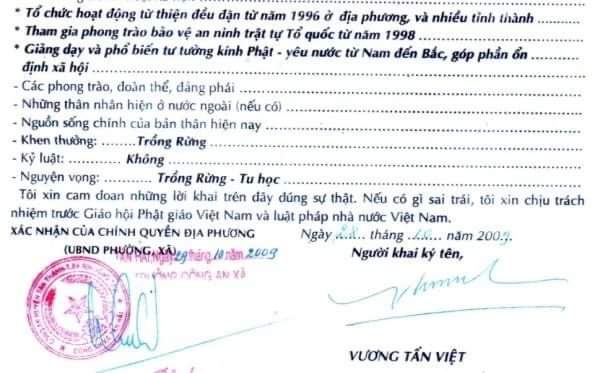 * Tổ chức hoạt động từ thiện đều đặn từ năm 1996 ở địa phương, và nhiều tỉnh thành
* Tham gia phong trào bảo vệ an ninh trật tự Tổ quốc từ năm 1998
* Giảng dạy và phổ biến tư tưởng kính Phật - yêu nước từ Nam đến Bắc, góp phần ổn
định xã hội
- Các phong trào, đoàn thể, đảng phái
- Những thân nhân hiện ở nước ngoài (nếu có)
- Nguồn sống chính của bản thân hiện nay
- Khen thưởng: ........Trồng Rừng
- Kỷ luật: ............ Không
- Nguyện vọng: ........... Trồng Rừng - Tu học
Tôi xin cam đoan những lời khai trên đây đúng sự thật. Nếu có gì sai trái, tôi xin chịu trách
nhiệm trước Giáo hội Phật giáo Việt Nam và luật pháp nhà nước Việt Nam.
XÁC NHẬN CỦA CHÍNH QUYỀN ĐỊA PHƯƠNG
(UBND PHƯỜNG, XÃ)
Ngày 28 tháng 10 năm 2009.
Người khai ký tên,
Ngày 29 tháng 10 năm 2009
TRƯỞNG CÔNG AN XÃ
VƯƠNG TẤN VIỆT